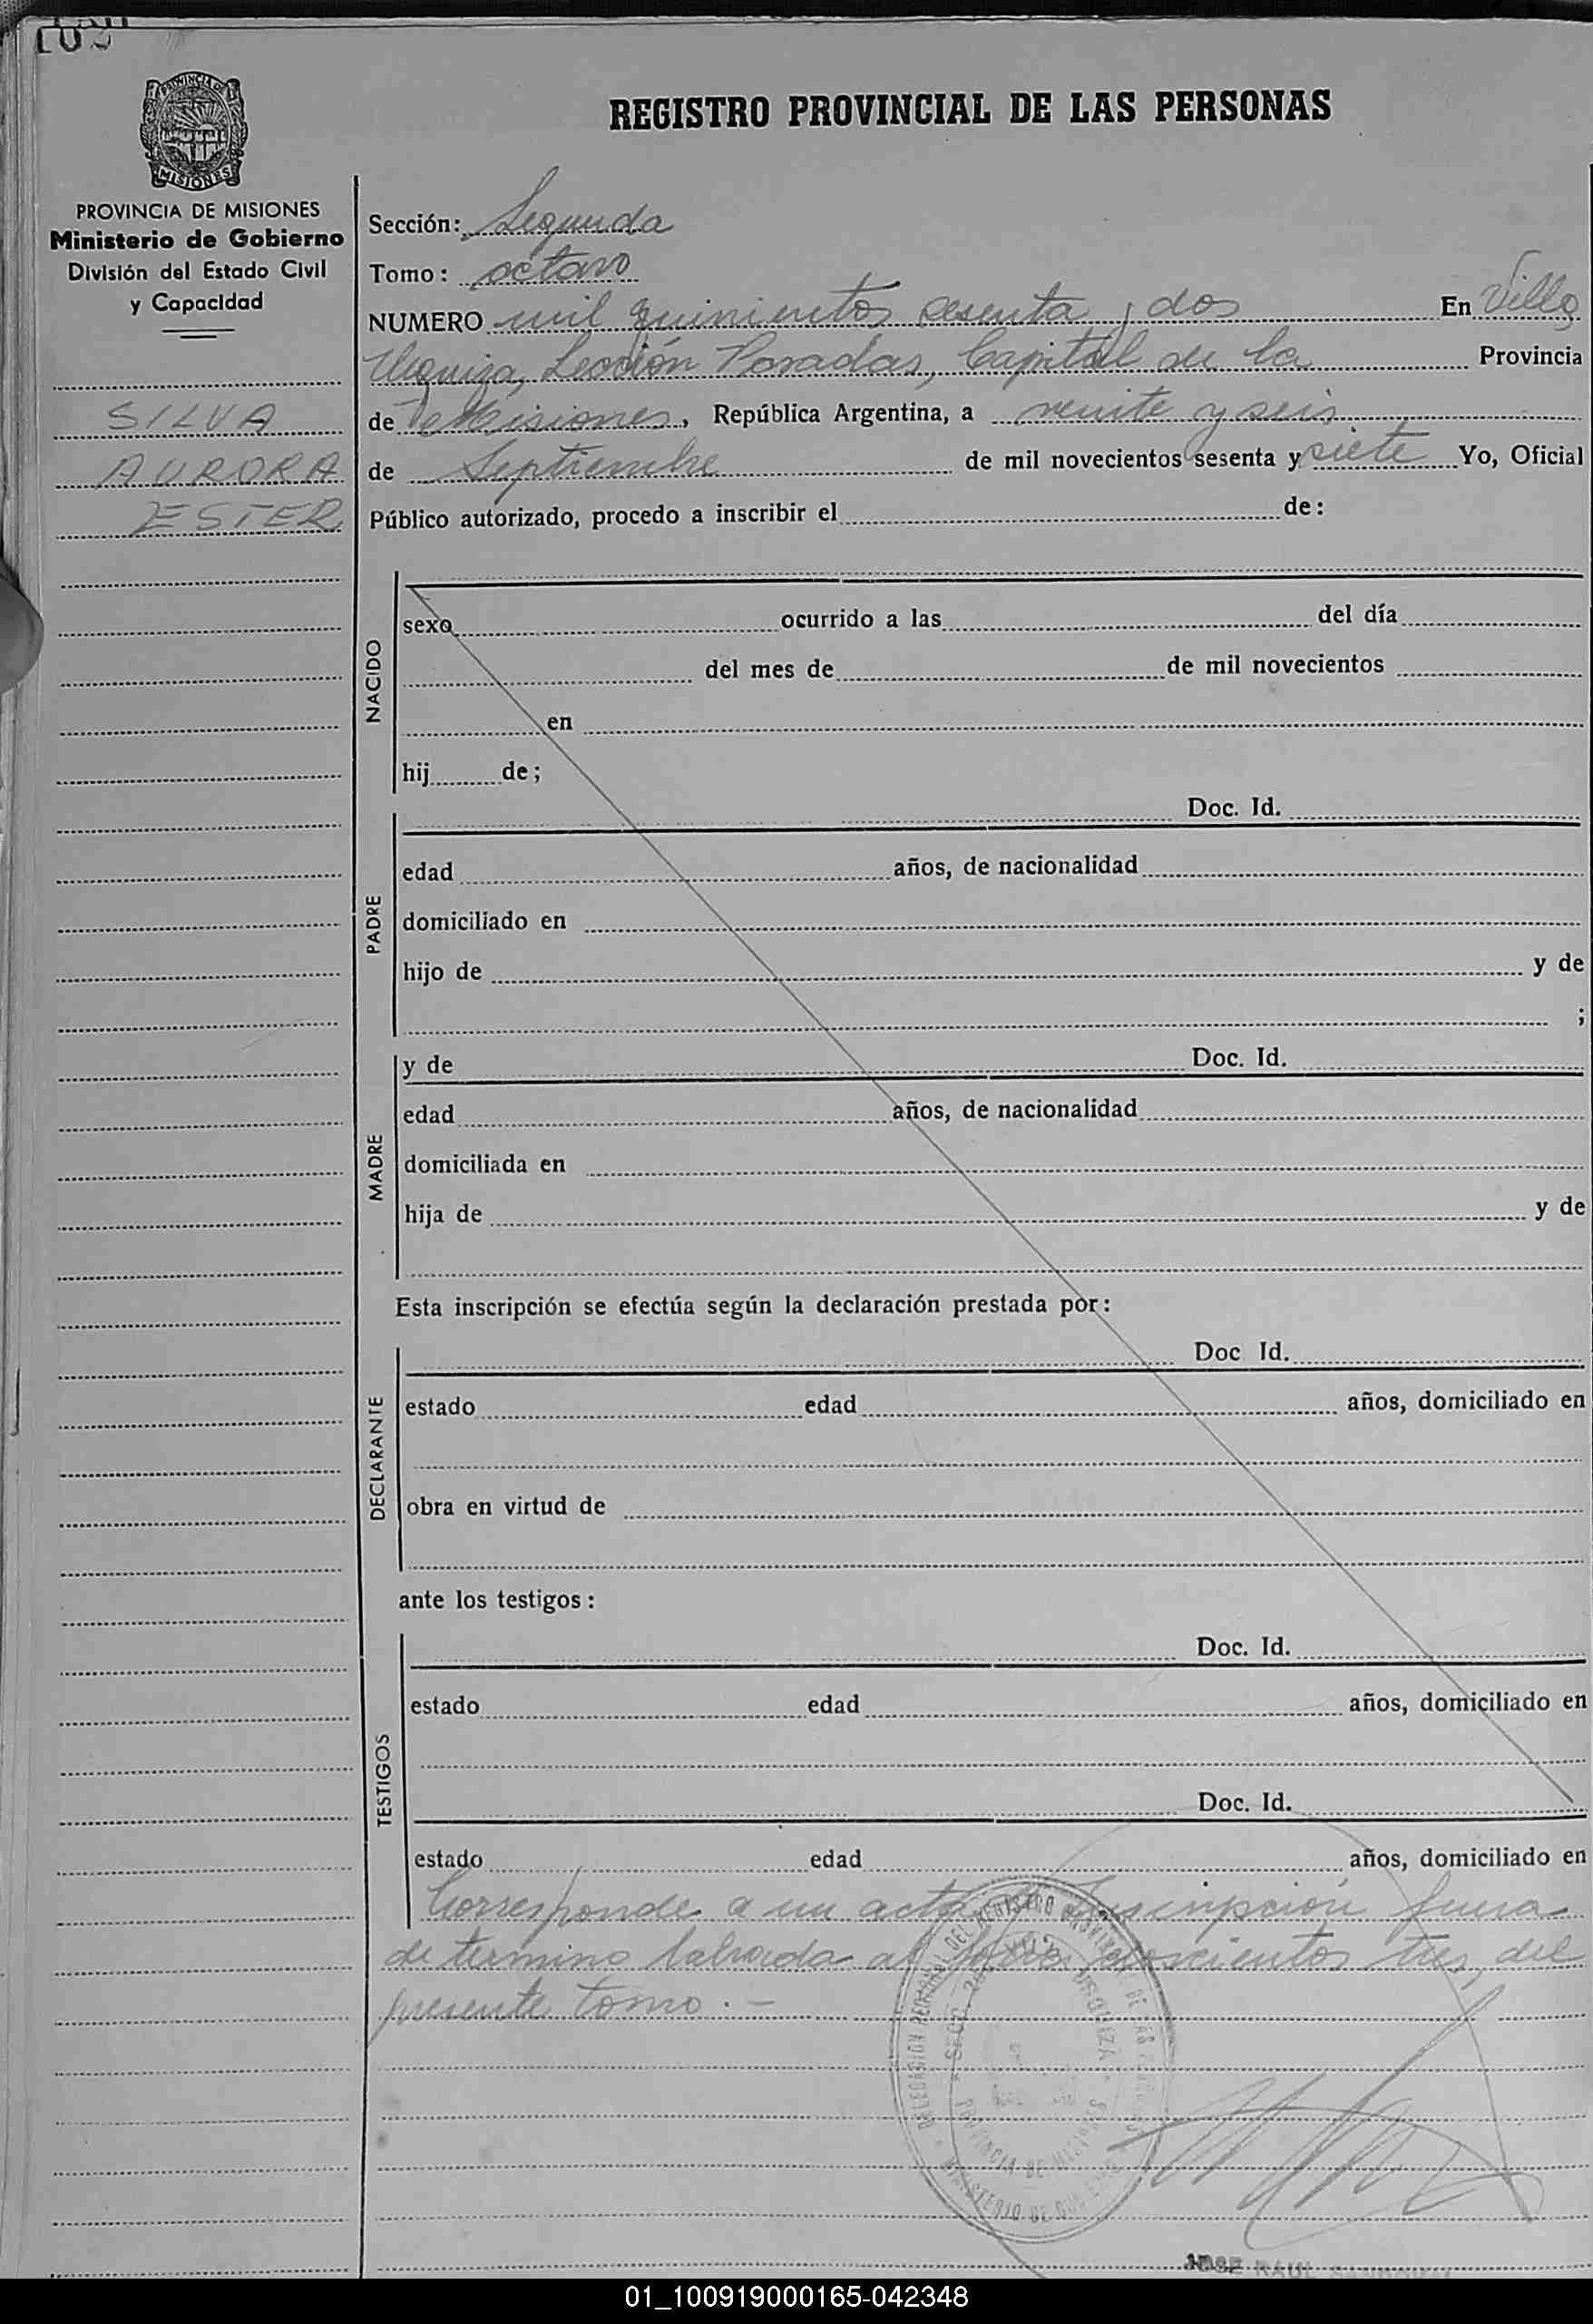 REGISTRO PROVINCIAL DE LAS PERSONAS
PROVINCIA DE
MISIONES
PROVINCIA DE MISIONES
Ministerio de Gobierno
División del Estado Civil
y Capacidad
SILVA
AURORA
ESTER
Sección: Segunda
Tomo: octavo
NUMERO mil quinientos sesenta y dos En Villa
Urquiza, Sección Posadas, Capital de la Provincia
de Misiones, República Argentina, a veinte y seis
de Septiembre de mil novecientos sesenta y siete Yo, Oficial
Público autorizado, procedo a inscribir el de:
NACIDO
sexo ocurrido a las del día
del mes de de mil novecientos
en
hij de;
PADRE
Doc. Id.
edad años, de nacionalidad
domiciliado en
hijo de y de
;
MADRE
y de Doc. Id.
edad años, de nacionalidad
domiciliada en
hija de y de
Esta inscripción se efectúa según la declaración prestada por:
DECLARANTE
Doc Id.
estado edad años, domiciliado en
obra en virtud de
ante los testigos:
TESTIGOS
Doc. Id.
estado edad años, domiciliado en
Doc. Id.
estado edad años, domiciliado en
Corresponde a un acta Inscripción fuera
de termino labrada al folio doscientos tres, del
presente tomo.-
DELEGACION REGIONAL DEL REGISTRO PROVINCIAL DE LAS
URQUIZA
PROVINCIA DE MISIONES
MINISTERIO DE
JOSE RAUL
01_100919000165-042348